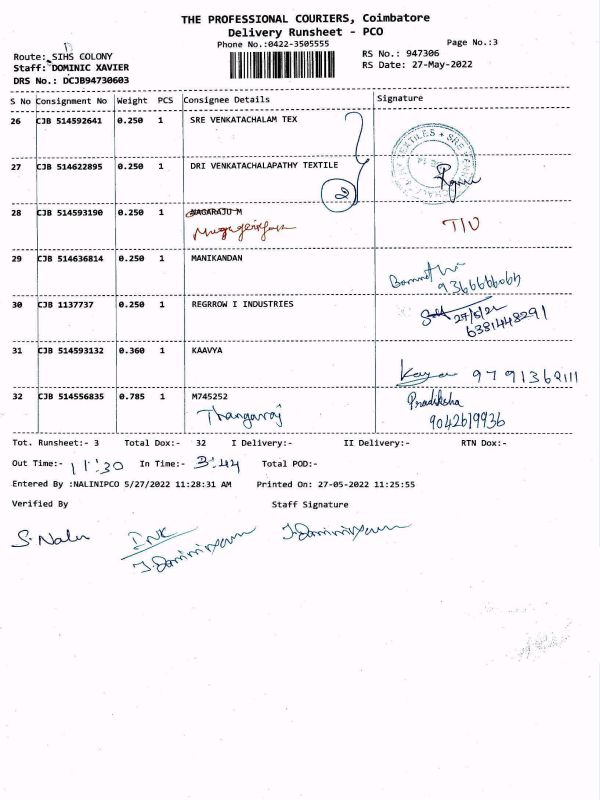 THE PROFESSIONAL COURIERS, Coimbatore
Delivery Runsheet - PCO
Phone No.:0422-3505555
Page No.:3
Route: SIHS COLONY
RS No.: 947306
Staff: DOMINIC XAVIER
RS Date: 27-May-2022
DRS No.: DCJB94730603
S No Consignment No Weight PCS Consignee Details Signature
26 CJB 514592641 0.250 1 SRE VENKATACHALAM TEX
27 CJB 514622895 0.250 1 DRI VENKATACHALAPATHY TEXTILE
2
28 CJB 514593190 0.250 1 NAGARAJU M
29 CJB 514636814 0.250 1 MANIKANDAN
30 CJB 1137737 0.250 1 REGRROW I INDUSTRIES
27/5/22
6381448291
31 CJB 514593132 0.360 1 KAAVYA
9791362111
32 CJB 514556835 0.785 1 M745252 Pradiksha
Thangaraj 9042619936
Tot. Runsheet:- 3 Total Dox:- 32 I Delivery:- II Delivery:- RTN Dox:-
Out Time:- 11:30 In Time:- 3:44 Total POD:-
Entered By :NALINIPCO 5/27/2022 11:28:31 AM Printed On: 27-05-2022 11:25:55
Verified By Staff Signature